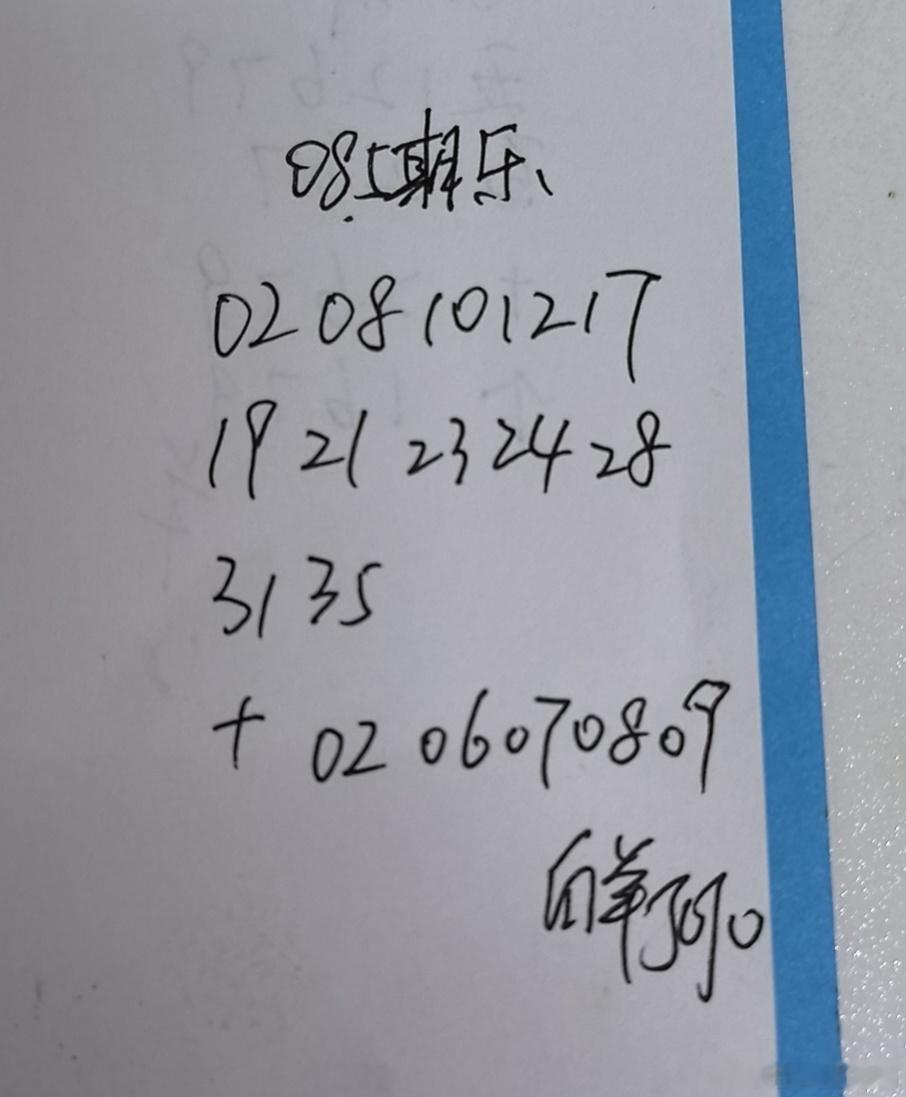 085期乐、
02 08 10 12 17
19 21 23 24 28
31 35
+ 02 06 07 08 09